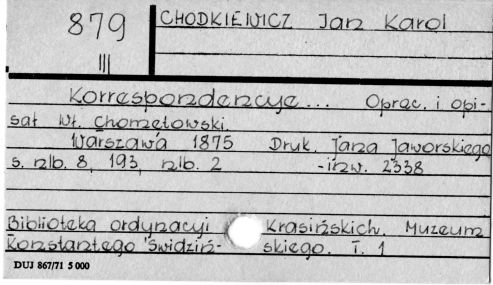 879
III
CHODKIEWICZ Jan Karol
Korrespondencye... Oprac. i opi-
sał Wł. Chomętowski
Warszawa 1875 Druk. Jana Jaworskiego
s. nlb. 8, 193, nlb. 2 -inw. 2338
Biblioteka ordynacyi Krasińskich. Muzeum
Konstantego Świdziń- skiego. T. 1
DUJ 867/71 5 000